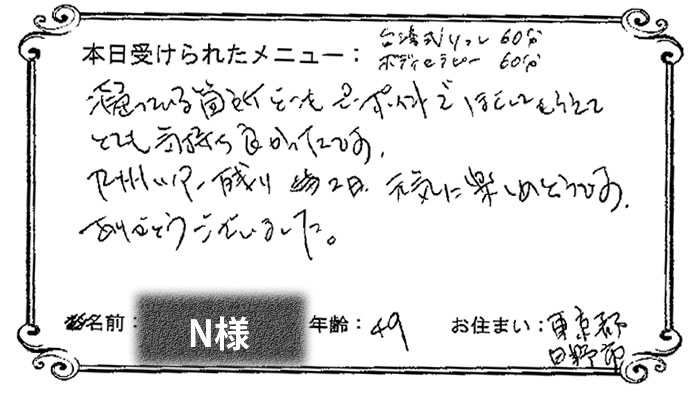 本日受けられたメニュー：台湾式リフレ 60分
ボディセラピー 60分
凝っている箇所をピンポイントでほぐしてもらえて
とても気持ち良かったです。
九州ツアー残り 2日 元気に楽しめそうです。
ありがとうございました。
お名前： N様 年齢：49 お住まい：東京都
日野市